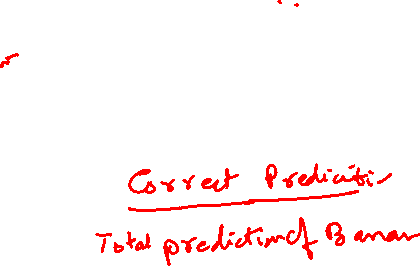 Correct Prediciti
Total prediction of Banan